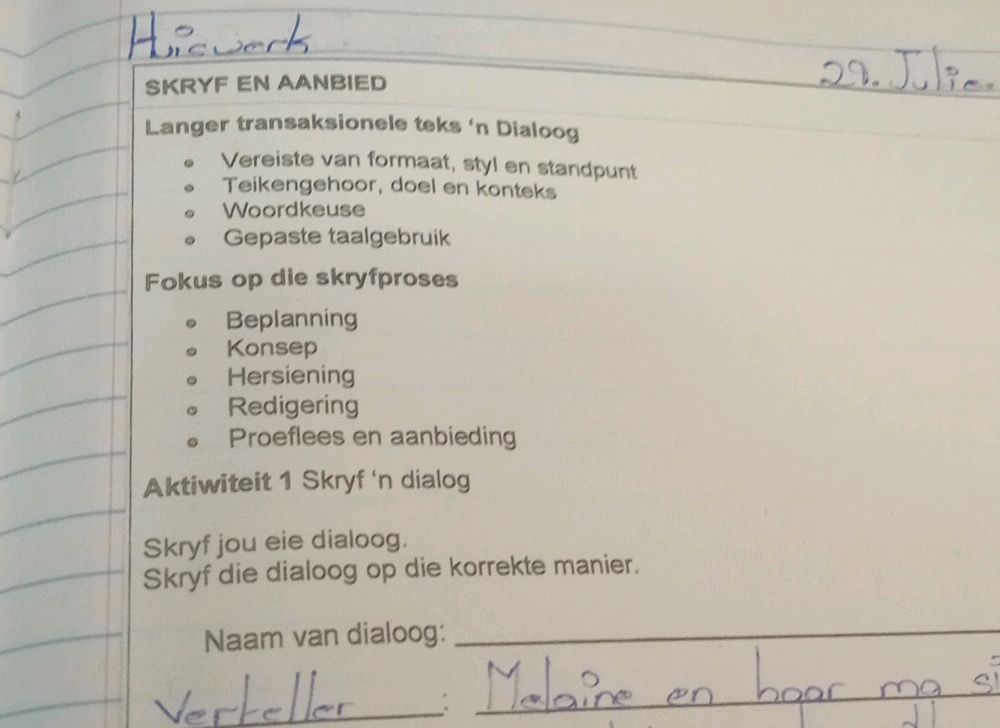 Huiswerk
29. Julie.
SKRYF EN AANBIED
Langer transaksionele teks 'n Dialoog
• Vereiste van formaat, styl en standpunt
• Teikengehoor, doel en konteks
• Woordkeuse
• Gepaste taalgebruik
Fokus op die skryfproses
• Beplanning
• Konsep
• Hersiening
• Redigering
• Proeflees en aanbieding
Aktiwiteit 1 Skryf 'n dialog
Skryf jou eie dialoog.
Skryf die dialoog op die korrekte manier.
Naam van dialoog:
Verteller : Melaine en haar ma